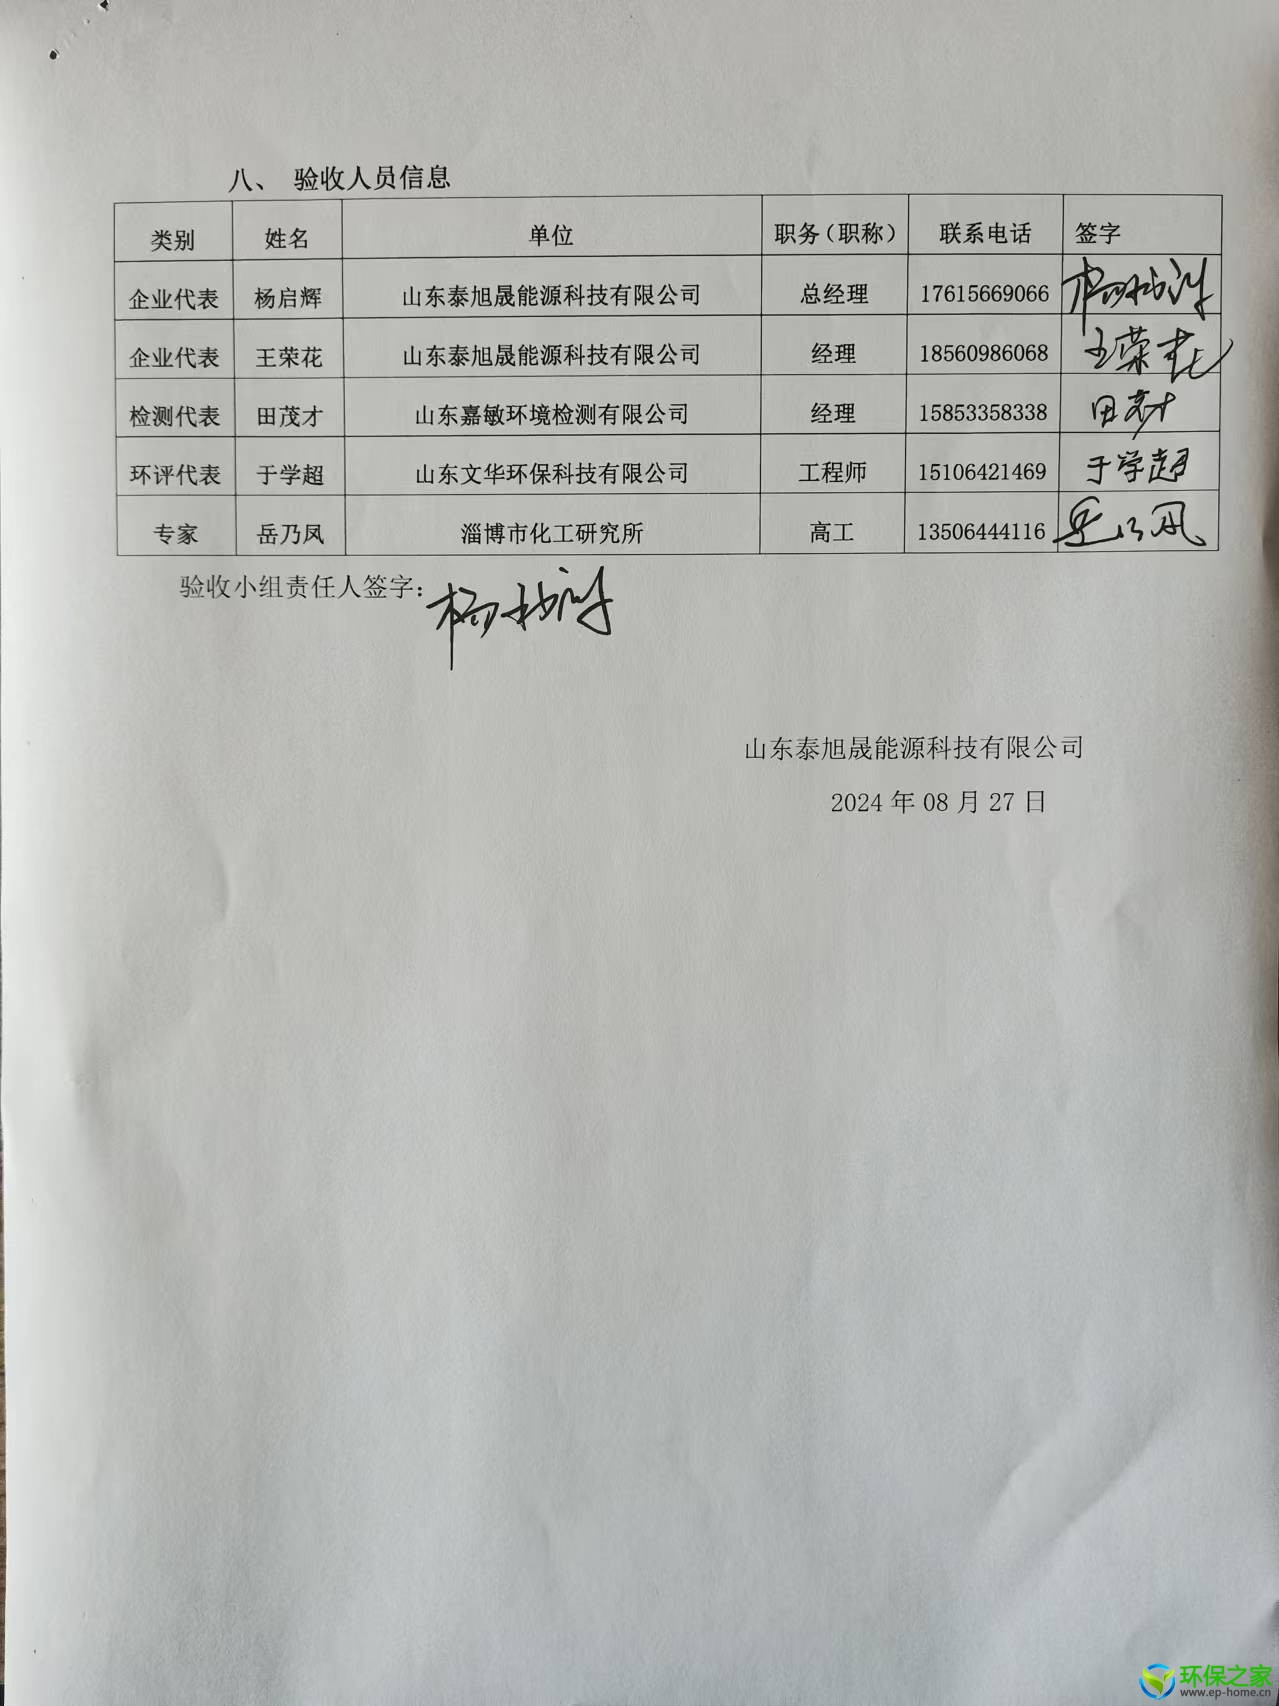 八、 验收人员信息
类别 姓名 单位 职务（职称） 联系电话 签字
企业代表 杨启辉 山东泰旭晟能源科技有限公司 总经理 17615669066
企业代表 王荣花 山东泰旭晟能源科技有限公司 经理 18560986068 王荣花
检测代表 田茂才 山东嘉敏环境检测有限公司 经理 15853358338 田茂才
环评代表 于学超 山东文华环保科技有限公司 工程师 15106421469 于学超
专家 岳乃凤 淄博市化工研究所 高工 13506444116 岳乃凤
验收小组责任人签字：
山东泰旭晟能源科技有限公司
2024 年 08 月 27 日
环保之家
www.ep-home.cn